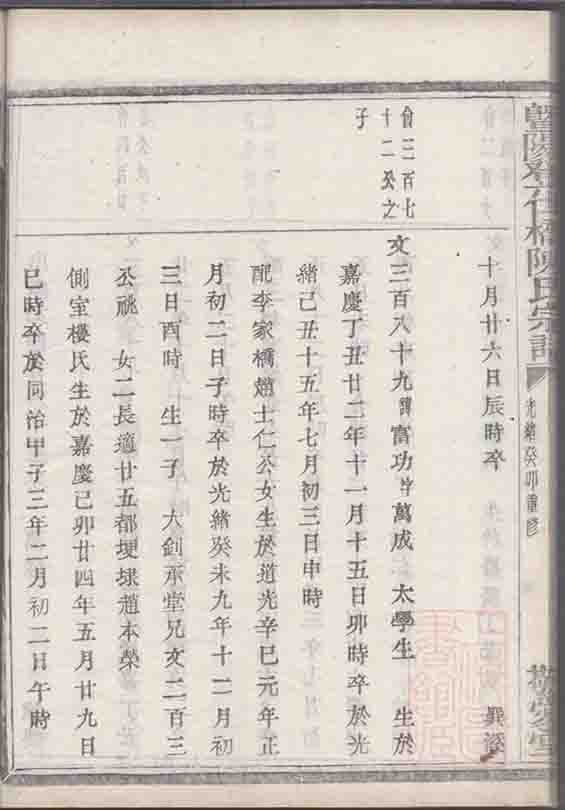 暨陽孝義橋陳氏宗譜 光緒癸卯重修
十月廿六日辰時卒
俞三百七
十二公之
子
文三百八十九諱富功字萬成 太學生 生於
嘉慶丁丑廿二年十一月十五日卯時卒於光
緒己丑十五年七月初三日申時
配李家橋趙士仁公女生於道光辛巳元年正
月初二日子時卒於光緒癸未九年十二月初
三日酉時 生一子 大釗承堂兄文二百三
公祧 女二長適廿五都埂埭趙本榮
側室樓氏生於嘉慶己卯廿四年五月廿九日
巳時卒於同治甲子三年二月初二日午時